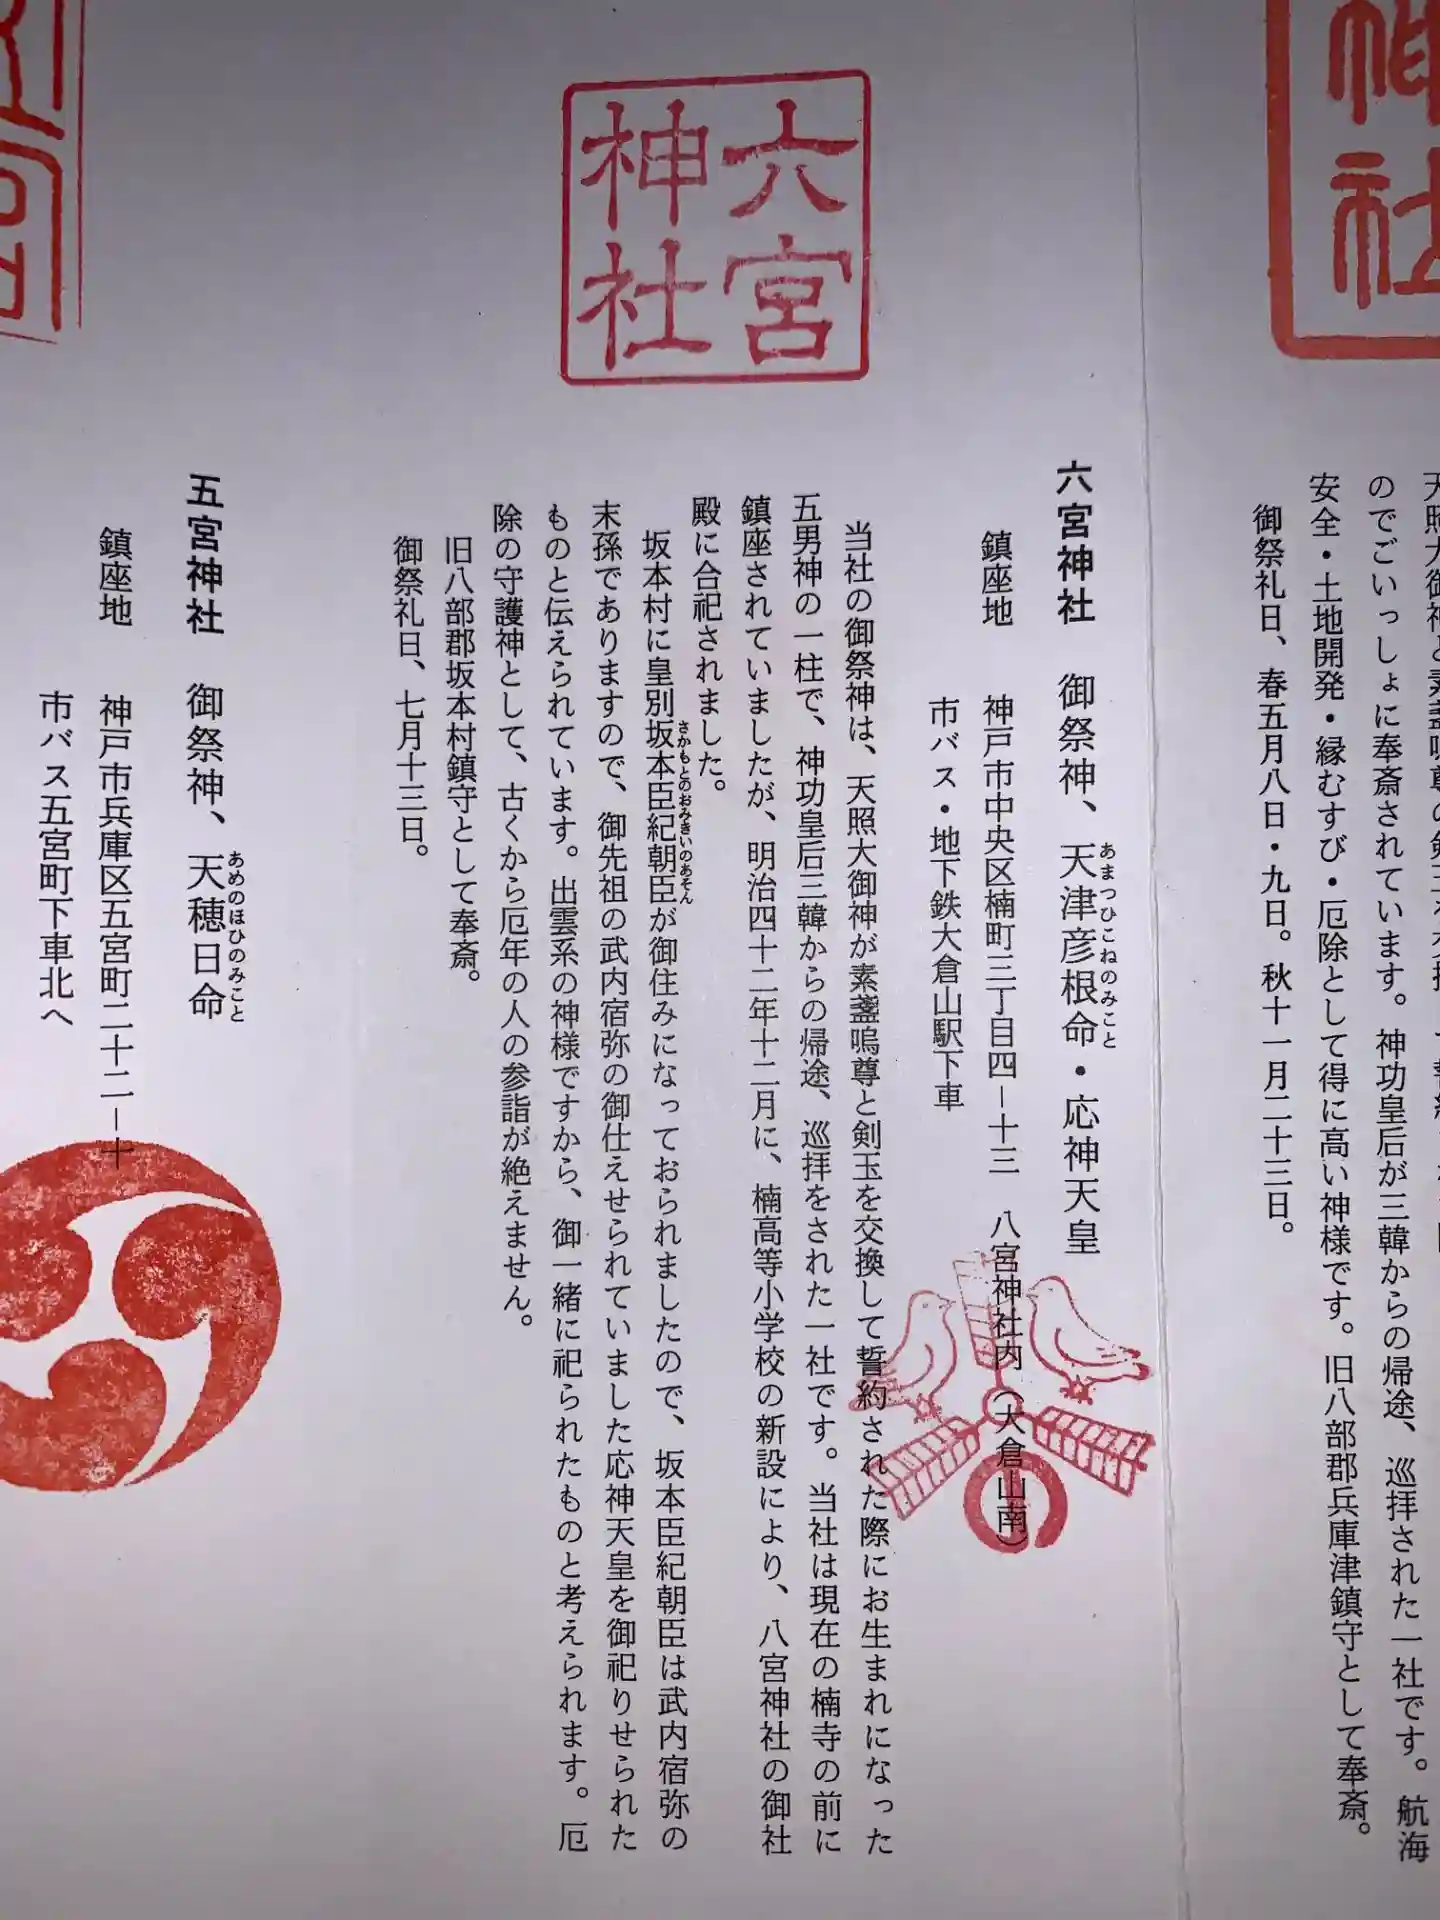 神社
天照大御神と素盞嗚尊
のでごいっしょに奉斎されています。神功皇后が三韓からの帰途、巡拝された一社です。航海
安全・土地開発・縁むすび・厄除として得に高い神様です。旧八部郡兵庫津鎮守として奉斎。
御祭礼日、春五月八日・九日。秋十一月二十三日。
六宮
神社
六宮神社 御祭神、天津彦根命・応神天皇
あまつひこねのみこと
鎮座地 神戸市中央区楠町三丁目四－十三 八宮神社内（大倉山南）
市バス・地下鉄大倉山駅下車
当社の御祭神は、天照大御神が素盞嗚尊と剣玉を交換して誓約された際にお生まれになった
五男神の一柱で、神功皇后三韓からの帰途、巡拝をされた一社です。当社は現在の楠寺の前に
鎮座されていましたが、明治四十二年十二月に、楠高等小学校の新設により、八宮神社の御社
殿に合祀されました。
坂本村に皇別坂本臣紀朝臣が御住みになっておられましたので、坂本臣紀朝臣は武内宿弥の
さかもとのおみきいのあそん
末孫でありますので、御先祖の武内宿弥の御仕えせられていました応神天皇を御祀りせられた
ものと伝えられています。出雲系の神様ですから、御一緒に祀られたものと考えられます。厄
除の守護神として、古くから厄年の人の参詣が絶えません。
旧八部郡坂本村鎮守として奉斎。
御祭礼日、七月十三日。
五宮神社 御祭神、天穂日命
あめのほひのみこと
鎮座地 神戸市兵庫区五宮町二十二－十
市バス五宮町下車北へ